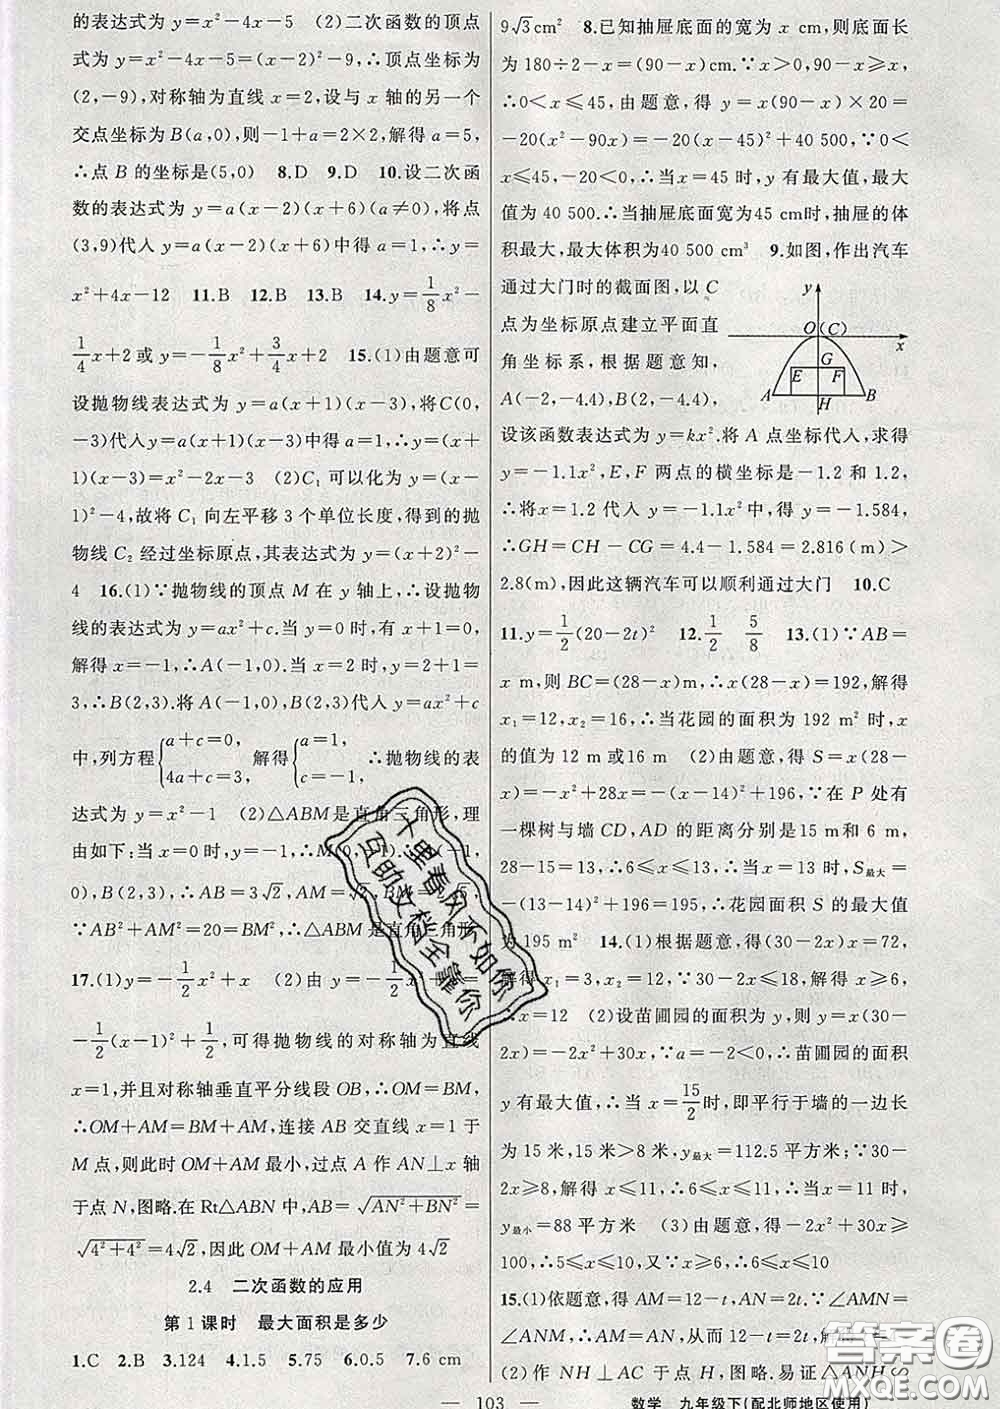 的表达式为 y=x²-4x-5　(2)二次函数的顶点
式为 y=x²-4x-5=(x-2)²-9,∴顶点坐标为
(2,-9),对称轴为直线 x=2,设与 x 轴的另一个
交点坐标为 B(a,0),则-1+a=2×2,解得 a=5,
∴点 B 的坐标是(5,0)　8.D　9.D　10.设二次函
数的表达式为 y=a(x-2)(x+6)(a≠0),将点
(3,9)代入 y=a(x-2)(x+6)中得 a=1,∴y=
x²+4x-12　11.B　12.B　13.B　14.y=1/8x²-
1/4x+2或 y=-1/8x²+3/4x+2　15.(1)由题意可
设抛物线表达式为 y=a(x+1)(x-3),将C(0,
-3)代入 y=a(x+1)(x-3)中得 a=1,∴y=(x+
1)(x-3)=x²-2x-3　(2)C₁ 可以化为 y=(x-
1)²-4,故将 C₁ 向左平移 3 个单位长度,得到的抛
物线 C₂ 经过坐标原点,其表达式为 y=(x+2)²-
4　16.(1)∵抛物线的顶点 M 在 y 轴上,∴设抛物
线的表达式为 y=ax²+c.当 y=0 时,有 x+1=0,
解得 x=-1,∴A(-1,0).当 x=2 时,y=2+1=
3,∴B(2,3).将 A(-1,0)、B(2,3)代入 y=ax²+c
中,列方程{a+c=0, 4a+c=3, 解得{a=1, c=-1, ∴抛物线的表
达式为 y=x²-1　(2)△ABM是直角三角形,理
由如下:当 x=0 时,y=-1,∴M(0,-1),
0),B(2,3),∴AB=3√2,AM=
∵AB²+AM²=20=BM²,∴△ABM 是直角三角形
17.(1)y=-1/2x²+x　(2)由 y=-1/2x²
-1/2(x-1)²+1/2,可得抛物线的对称轴为直线
x=1,并且对称轴垂直平分线段 OB,∴OM=BM,
∴OM+AM=BM+AM,连接 AB 交直线 x=1 于
M 点,则此时 OM+AM 最小,过点 A 作 AN⊥x 轴
于点 N,图略.在 Rt△ABN 中,AB=√(AN²+BN²)=
√(4²+4²)=4√2,因此 OM+AM 最小值为 4√2
2.4　二次函数的应用
第 1 课时　最大面积是多少
1.C　2.B　3.124　4.1.5　5.75　6.0.5　7.6 cm
9√3cm²　8.已知抽屉底面的宽为 x cm,则底面长
为 180÷2-x=(90-x)cm.∵x>0,90-x≥x,
∴0<x≤45,由题意,得 y=x(90-x)×20=
-20(x²-90x)=-20(x-45)²+40 500.∵0<
x≤45,-20<0,∴当 x=45 时,y 有最大值,最大
值为 40 500.∴当抽屉底面宽为45 cm时,抽屉的体
积最大,最大体积为40 500 cm³　9.如图,作出汽车
通过大门时的截面图,以 C
点为坐标原点建立平面直
角坐标系,根据题意知,
A(-2,-4.4),B(2,-4.4),
y
O(C)
x
G
E F
A H B
设该函数表达式为 y=kx².将 A 点坐标代入,求得
y=-1.1x²,E,F 两点的横坐标是-1.2 和 1.2,
∴将 x=1.2 代入 y=-1.1x² 中,得 y=-1.584,
∴GH=CH-CG=4.4-1.584=2.816(m)>
2.8(m),因此这辆汽车可以顺利通过大门　10.C
11.y=1/2(20-2t)²　12.1/2　5/8　13.(1)∵AB=
x m,则 BC=(28-x)m,∴x(28-x)=192,解得
x₁=12,x₂=16,∴当花园的面积为 192 m² 时,x
的值为 12 m 或16 m　(2)由题意,得 S=x(28-
x)=-x²+28x=-(x-14)²+196,∵在 P 处有
一棵树与墙 CD,AD 的距离分别是15 m和 6 m,
28-15=13,∴6≤x≤13,∴当 x=13 时,S最大=
-(13-14)²+196=195,∴花园面积 S 的最大值
为 195 m²　14.(1)根据题意,得(30-2x)x=72,
解得 x₁=3,x₂=12,∵30-2x≤18,解得 x≥6,
∴x=12　(2)设苗圃园的面积为 y,则y=x(30-
2x)=-2x²+30x,∵a=-2<0,∴苗圃园的面积
y 有最大值,∴当 x=15/2时,即平行于墙的一边长
为15米,15米>8米,y最大=112.5 平方米;∵30-
2x≥8,解得 x≤11,∵6≤x≤11,∴当 x=11 时,
y最小=88 平方米　(3)由题意,得-2x²+30x≥
100,∴5≤x≤10,又∵x≥6,∴6≤x≤10
15.(1)依题意,得 AM=12-t,AN=2t,∵∠AMN=
∠ANM,∴AM=AN,从而12-t=2t,解
(2)作 NH⊥AC 于点 H,图略.易证△ANH∽
十里春风不如你
互助文档全靠你
答案圈
MXQE.COM
— 103 —
数学　九年级下(配北师地区使用)